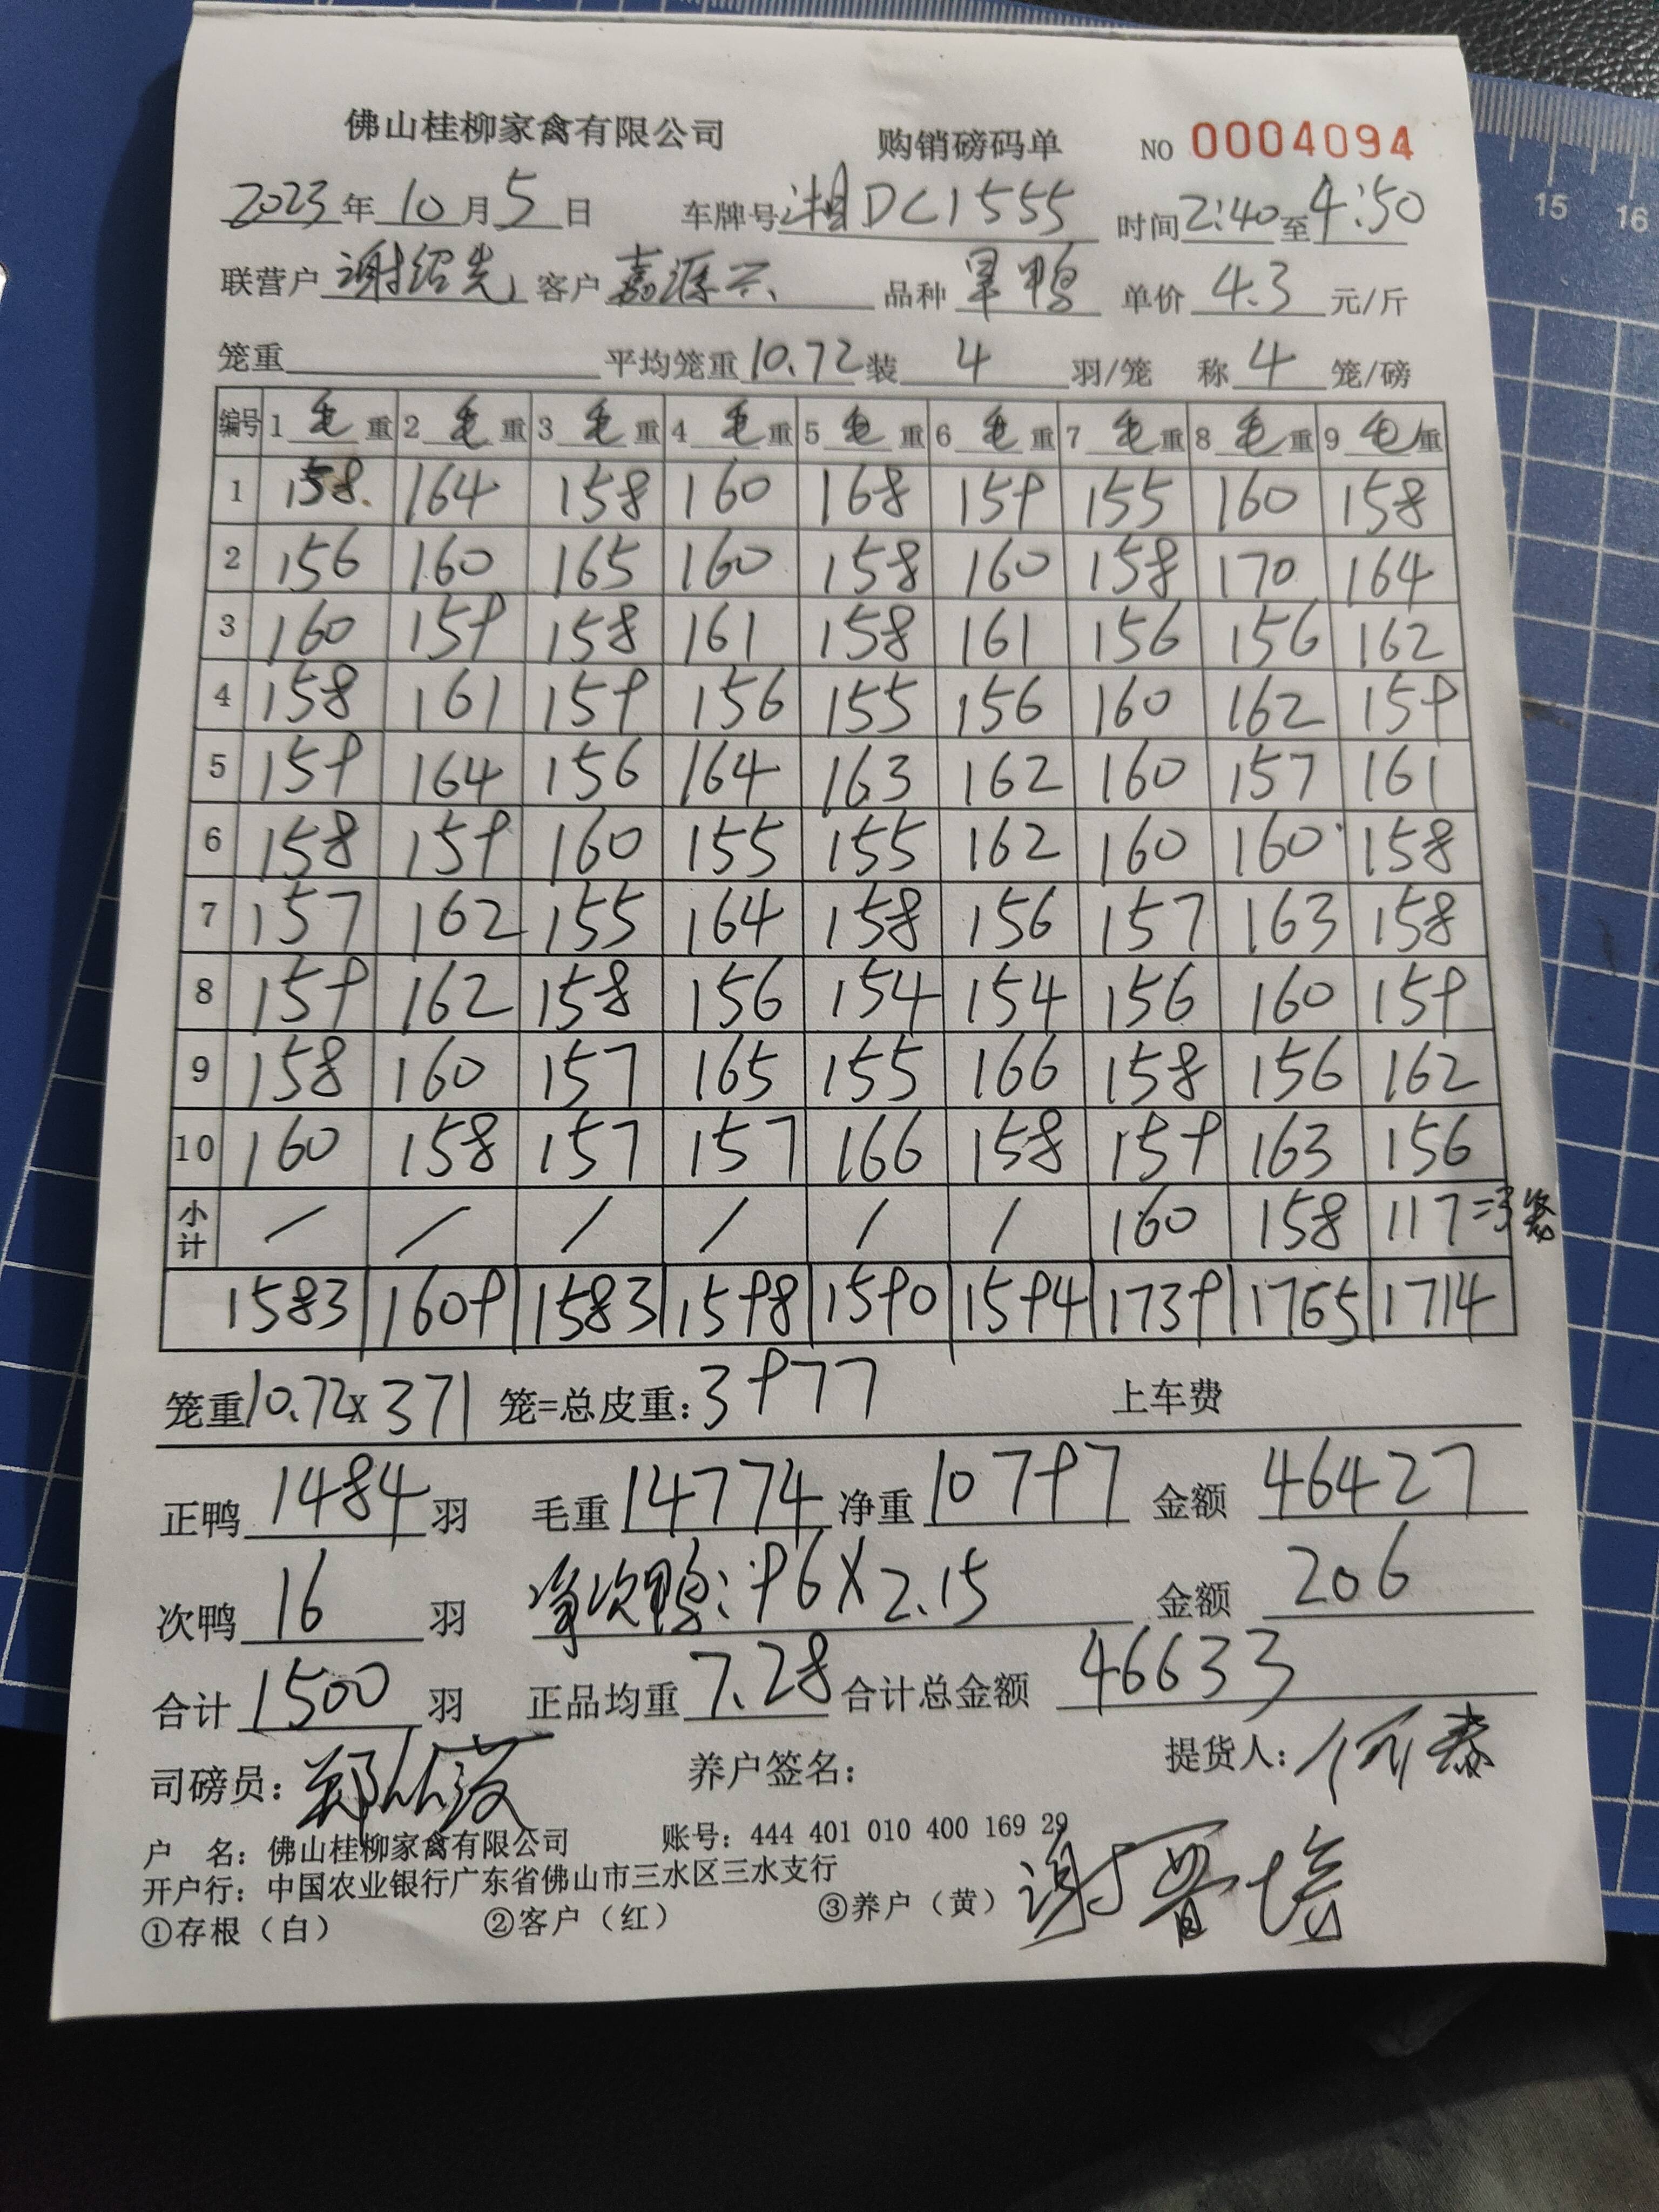 佛山桂柳家禽有限公司 购销磅码单 NO 0004094
2023年10月5日 车牌号湘DC1555 时间2:40至4:50
联营户谢绍先 客户嘉源 品种 鸭 单价4.3元/斤
笼重 平均笼重10.72装4羽/笼 称4笼/磅
编号 1毛重 2毛重 3毛重 4毛重 5毛重 6毛重 7毛重 8毛重 9毛重
1 158 164 158 160 168 159 155 160 158
2 156 160 165 160 158 160 158 170 164
3 160 159 158 161 158 161 156 156 162
4 158 161 159 156 155 156 160 162 159
5 159 164 156 164 163 162 160 157 161
6 158 159 160 155 155 162 160 160 158
7 157 162 155 164 158 156 157 163 158
8 159 162 158 156 154 154 156 160 159
9 158 160 157 165 155 166 158 156 162
10 160 158 157 157 166 158 159 163 156
小计 / / / / / / 160 158 117=3笼
1583 1609 1583 1598 1590 1594 1739 1765 1714
笼重10.72x371笼=总皮重:3977 上车费
正鸭1484羽 毛重14774净重10797 金额46427
次鸭16羽 净次鸭:96X2.15 金额206
合计1500羽 正品均重7.28合计总金额46633
司磅员:郑 养户签名: 提货人:何泰
户 名:佛山桂柳家禽有限公司 账号:444 401 010 400 169 29
开户行:中国农业银行广东省佛山市三水区三水支行
①存根(白) ②客户(红) ③养户(黄) 谢晋培